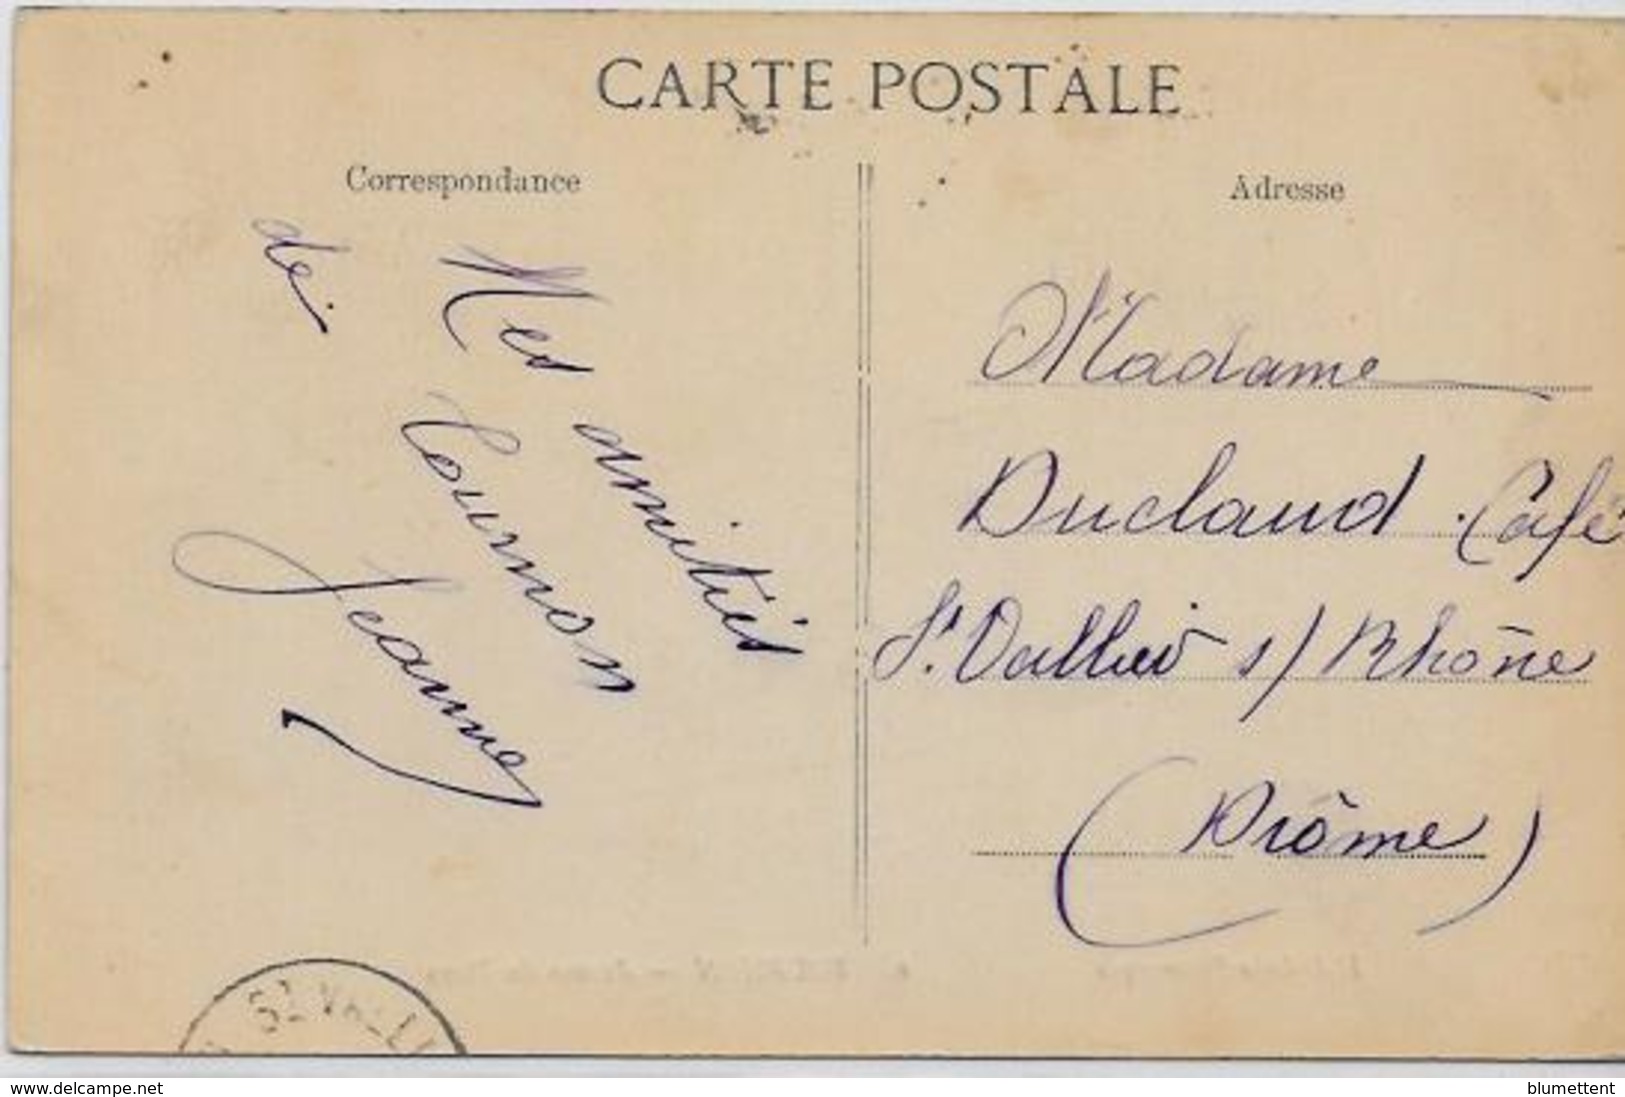 CARTE POSTALE
Correspondance
Mes amitiés
de Tournon
Jeanne
Adresse
Madame
Duclaud. Café
St. Vallier s/ Rhône
(Drôme)
ST VALLI
www.delcampe.net
blumettent